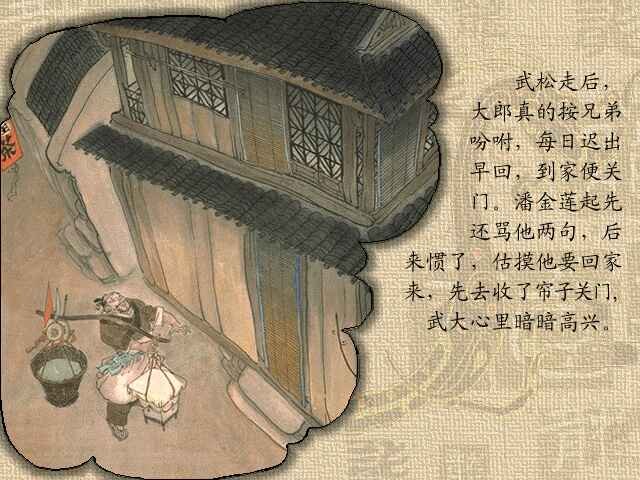 武松走后，
大郎真的按兄弟
吩咐，每日迟出
早回，到家便关
门。潘金莲起先
还骂他两句，后
来惯了，估摸他要回家
来，先去收了帘子关门，
武大心里暗暗高兴。